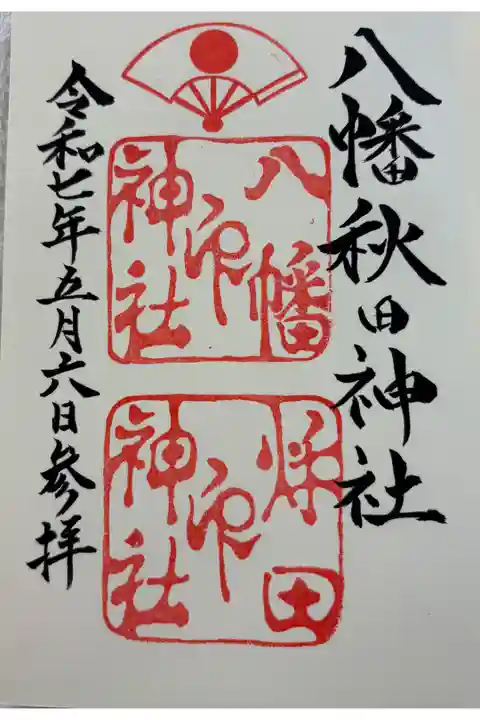 八幡秋田神社
八幡
神社
印
秋田
神社
印
令和七年五月六日参拝